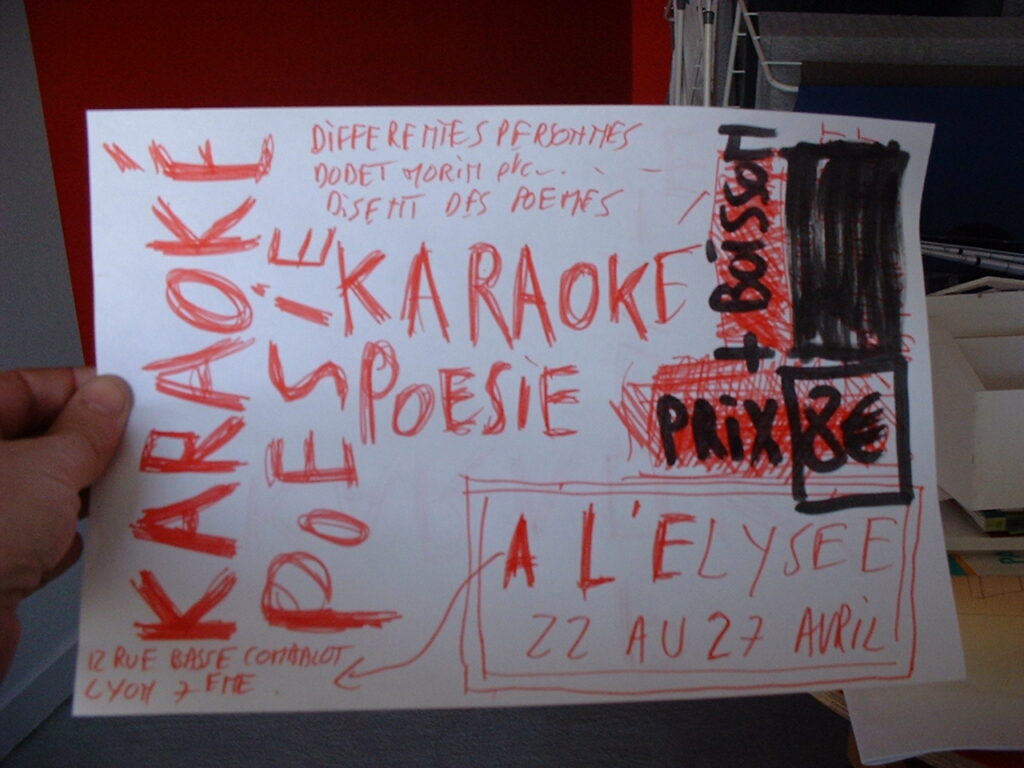 DIFFERENTES PERSONNES
DODET MORIN
DISENT DES POEMES
KARAOKÉ
POESIE
KARAOKE
POESIE
+ BOISSON
PRIX 8€
A L'ELYSEE
22 AU 27 AVRIL
12 RUE BASSE COMBALOT
LYON 7EME